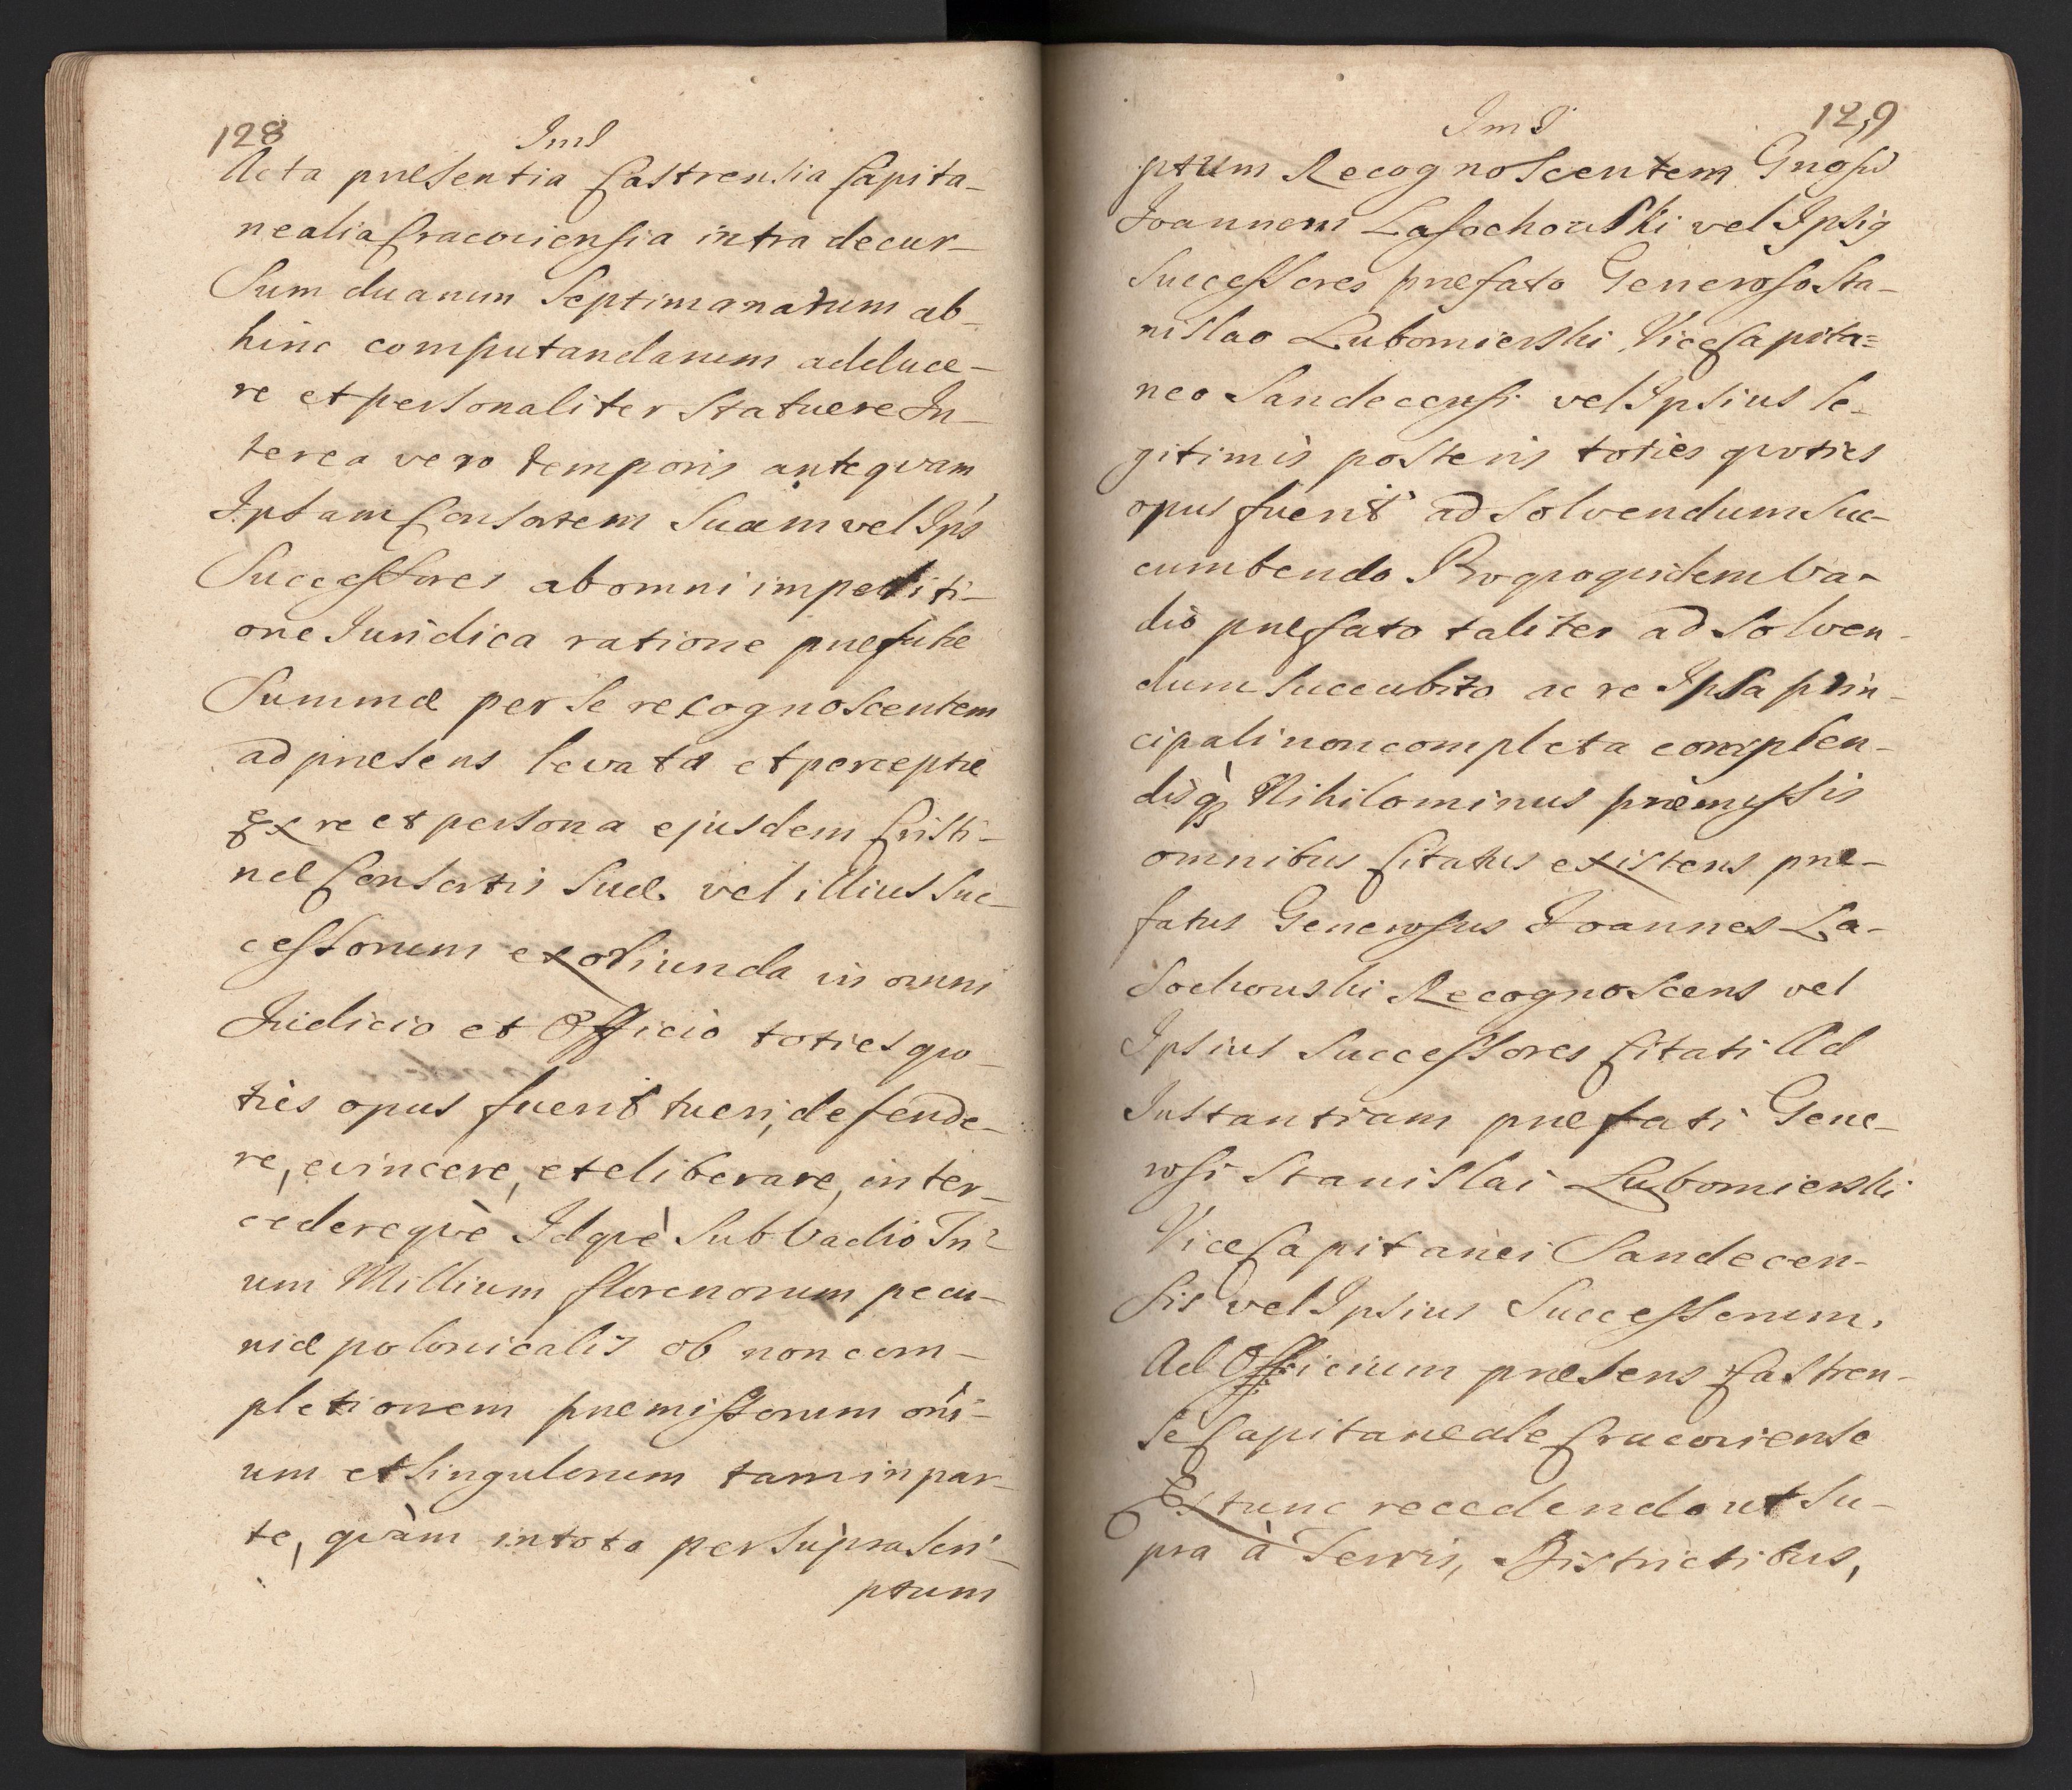 128
Ims
Acta præsentia Castrensia Capita-
nealia Cracoviensia intra decur-
Sum duarum Septimanarum ab-
hinc computandarum adduce-
re et personaliter Statuere In-
terea vero temporis antequam
Ipsam Consortem Suam vel Ips
Successores ab omni impediti-
one Juridica ratione præfatæ
Summæ per Se recognoscentem
ad præsens levatæ et perceptæ
Ex re et persona ejusdem Cristi-
næ Consortis Suæ vel illius Suc-
cessorum exoriunda in omni
Judicio et Officio toties quo-
ties opus fuerit tueri, defende-
re, evincere, et eliberare, inter-
cedereqvè Idqvè Sub Vadio Tri-
um Millium florenorum pecu-
niæ polonicalis ob non com-
pletionem præmissorum oni-
um et Singulorum tam in par-
te, qvàm in toto per Supra Scri-
ptum
Ims
129
ptum Recognoscentem Gnosu
Joannem Lasochowski vel Ipsig
Successores præfato Generoso Sta-
nislao Lubomierski Vice Capita=
neo Sandecensi vel Ipsius le-
gitimis posteris toties quoties
opus fuerit ad Solvendum Suc-
cumbendo Pro quoquidem Va-
dio præfato taliter ad Solven-
dum Succubito ac re Ipsa prin-
cipali non completa complen-
disq; Nihilominus præmissis
omnibus Citatus existens præ-
fatus Generosus Joannes La-
Sochowski Recognoscens vel
Ipsius Successores Citati Ad
Instantiam præfati Gene-
rosi Stanislai Lubomierski
Vice Capitanei Sandecen-
Sis vel Ipsius Successorum.
Ad Officium præsens Castren-
Se Capitaneale Cracoviense
Ex tunc recedendo ut Su-
pra à Terris, Districtibus,